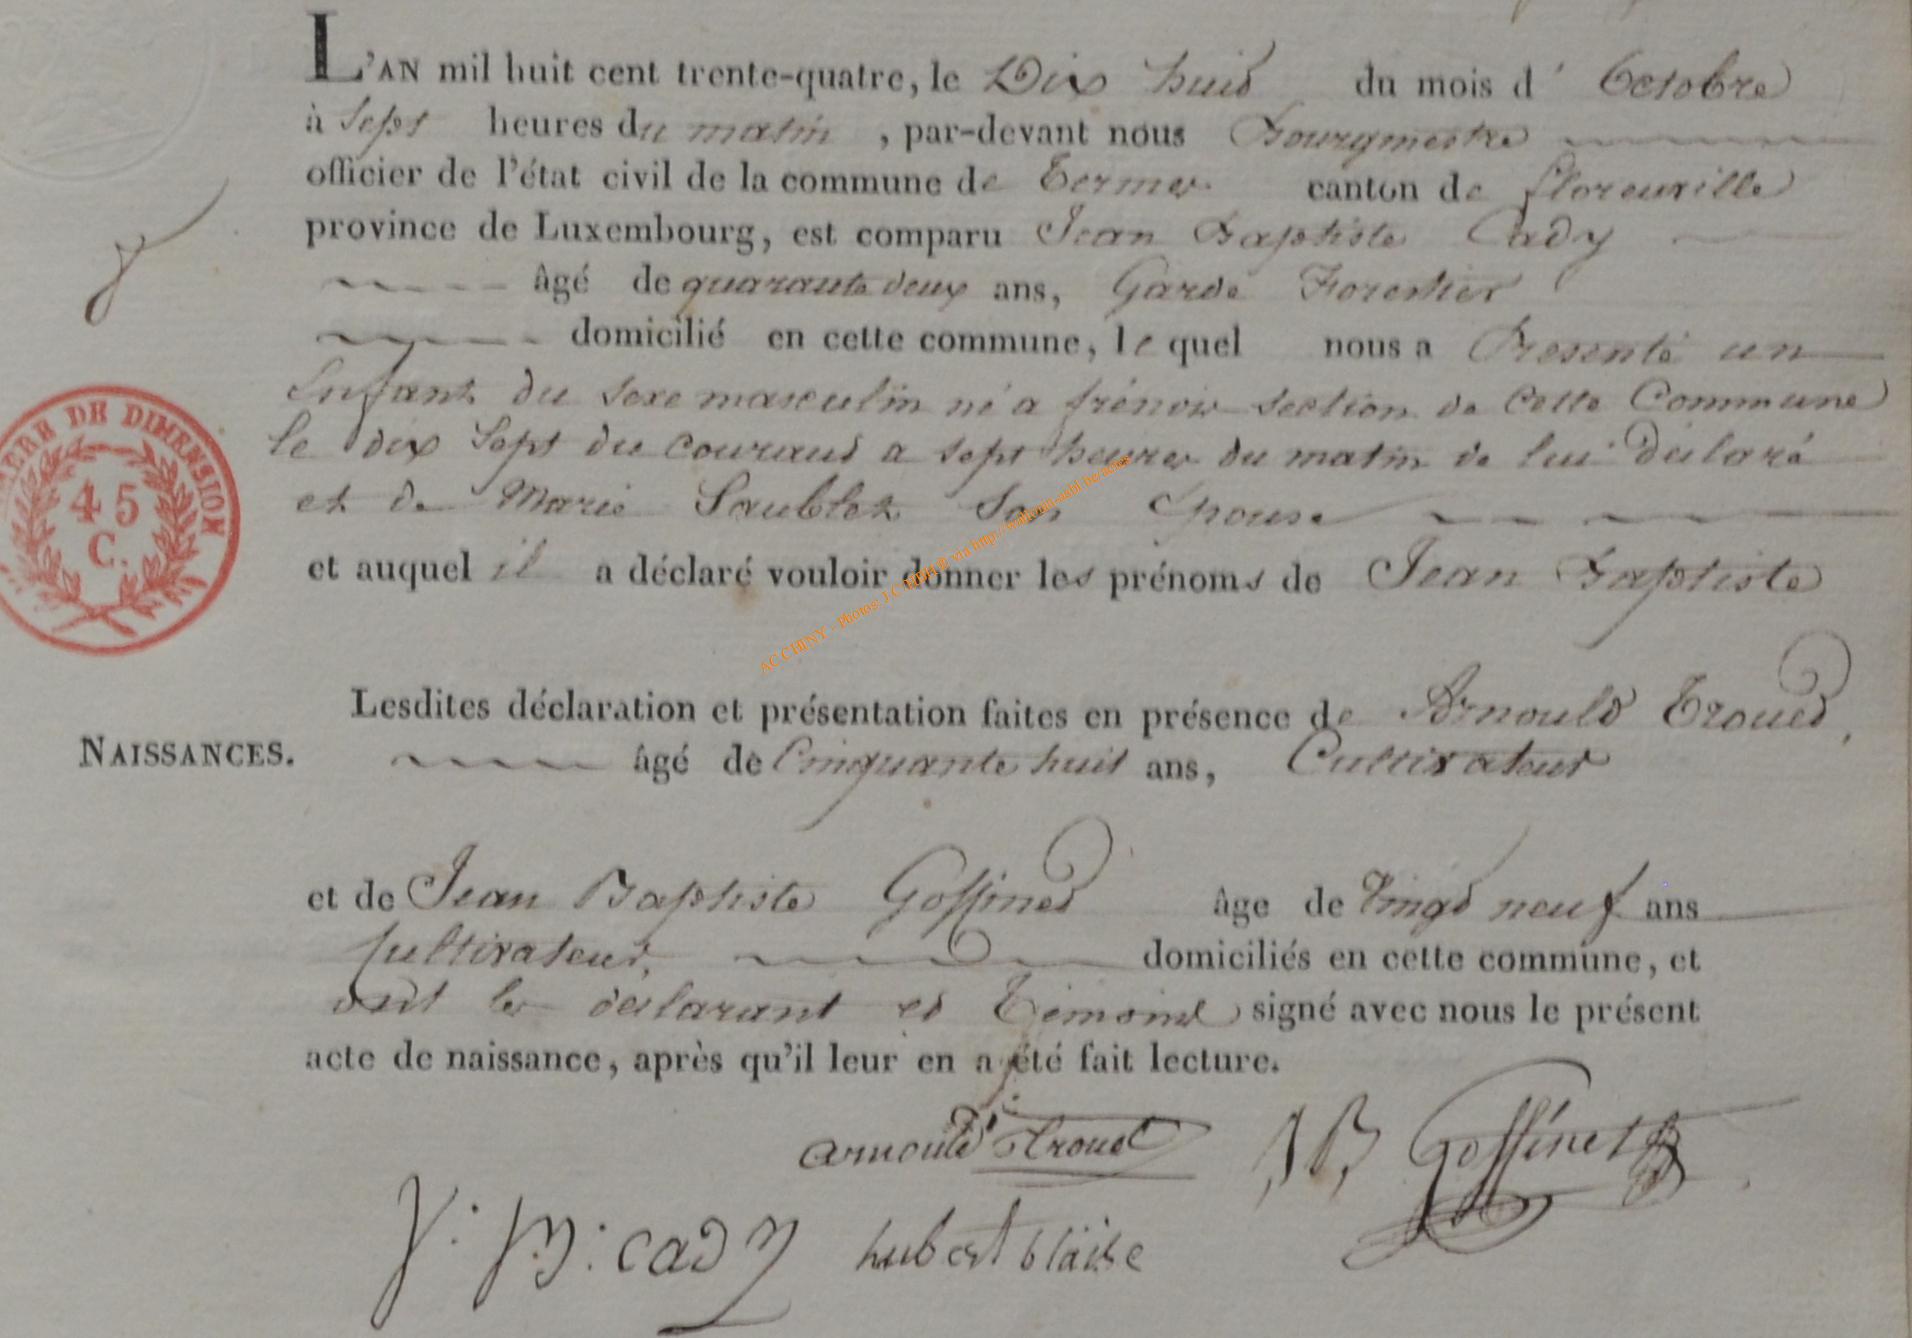 L'AN mil huit cent trente-quatre, le Dix huit du mois d' Octobre
à Sept heures du matin , par-devant nous Bourgmestre
officier de l'état civil de la commune de Termes canton de florenville
province de Luxembourg, est comparu Jean Baptiste Cady
âgé de quarante deux ans, Garde Forestier
domicilié en cette commune, le quel nous a Presenté un
Enfant du sexe masculin né a frénois section de Cette Commune
le dix Sept du courant a sept heures du matin de lui déclaré
et de Marie Saublet Son Epouse
et auquel il a déclaré vouloir donner les prénoms de Jean Baptiste
Lesdites déclaration et présentation faites en présence de Arnould Trouet,
NAISSANCES.
âgé de Cinquante huit ans, Cultivateur
et de Jean Baptiste Goffinet âge de Vingt neuf ans
Cultivateur, domiciliés en cette commune, et
ont les declarant et Témoins signé avec nous le présent
acte de naissance, après qu'il leur en a été fait lecture.
arnould Trouet JB Goffinet
J. B. cady hubert blaise
DE DIMENSION
45
C.
ACCHINY - Photos J.C. via